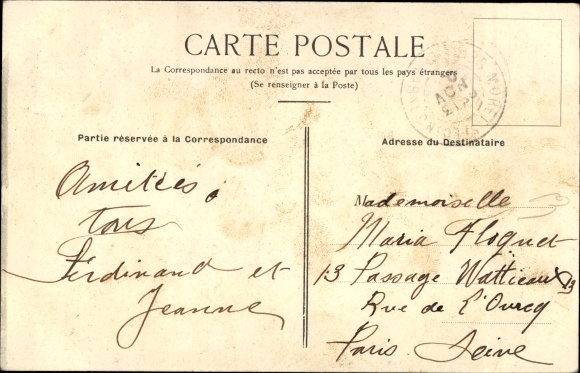 CARTE POSTALE
La Correspondance au recto n'est pas acceptée par tous les pays étrangers
(Se renseigner à la Poste)
Partie réservée à la Correspondance
Amitiés à
tous
Ferdinand et
Jeanne
Adresse du Destinataire
Mademoiselle
Maria Floquet
13 Passage Watticaux 19
Rue de l'Ourcq
Paris Seine